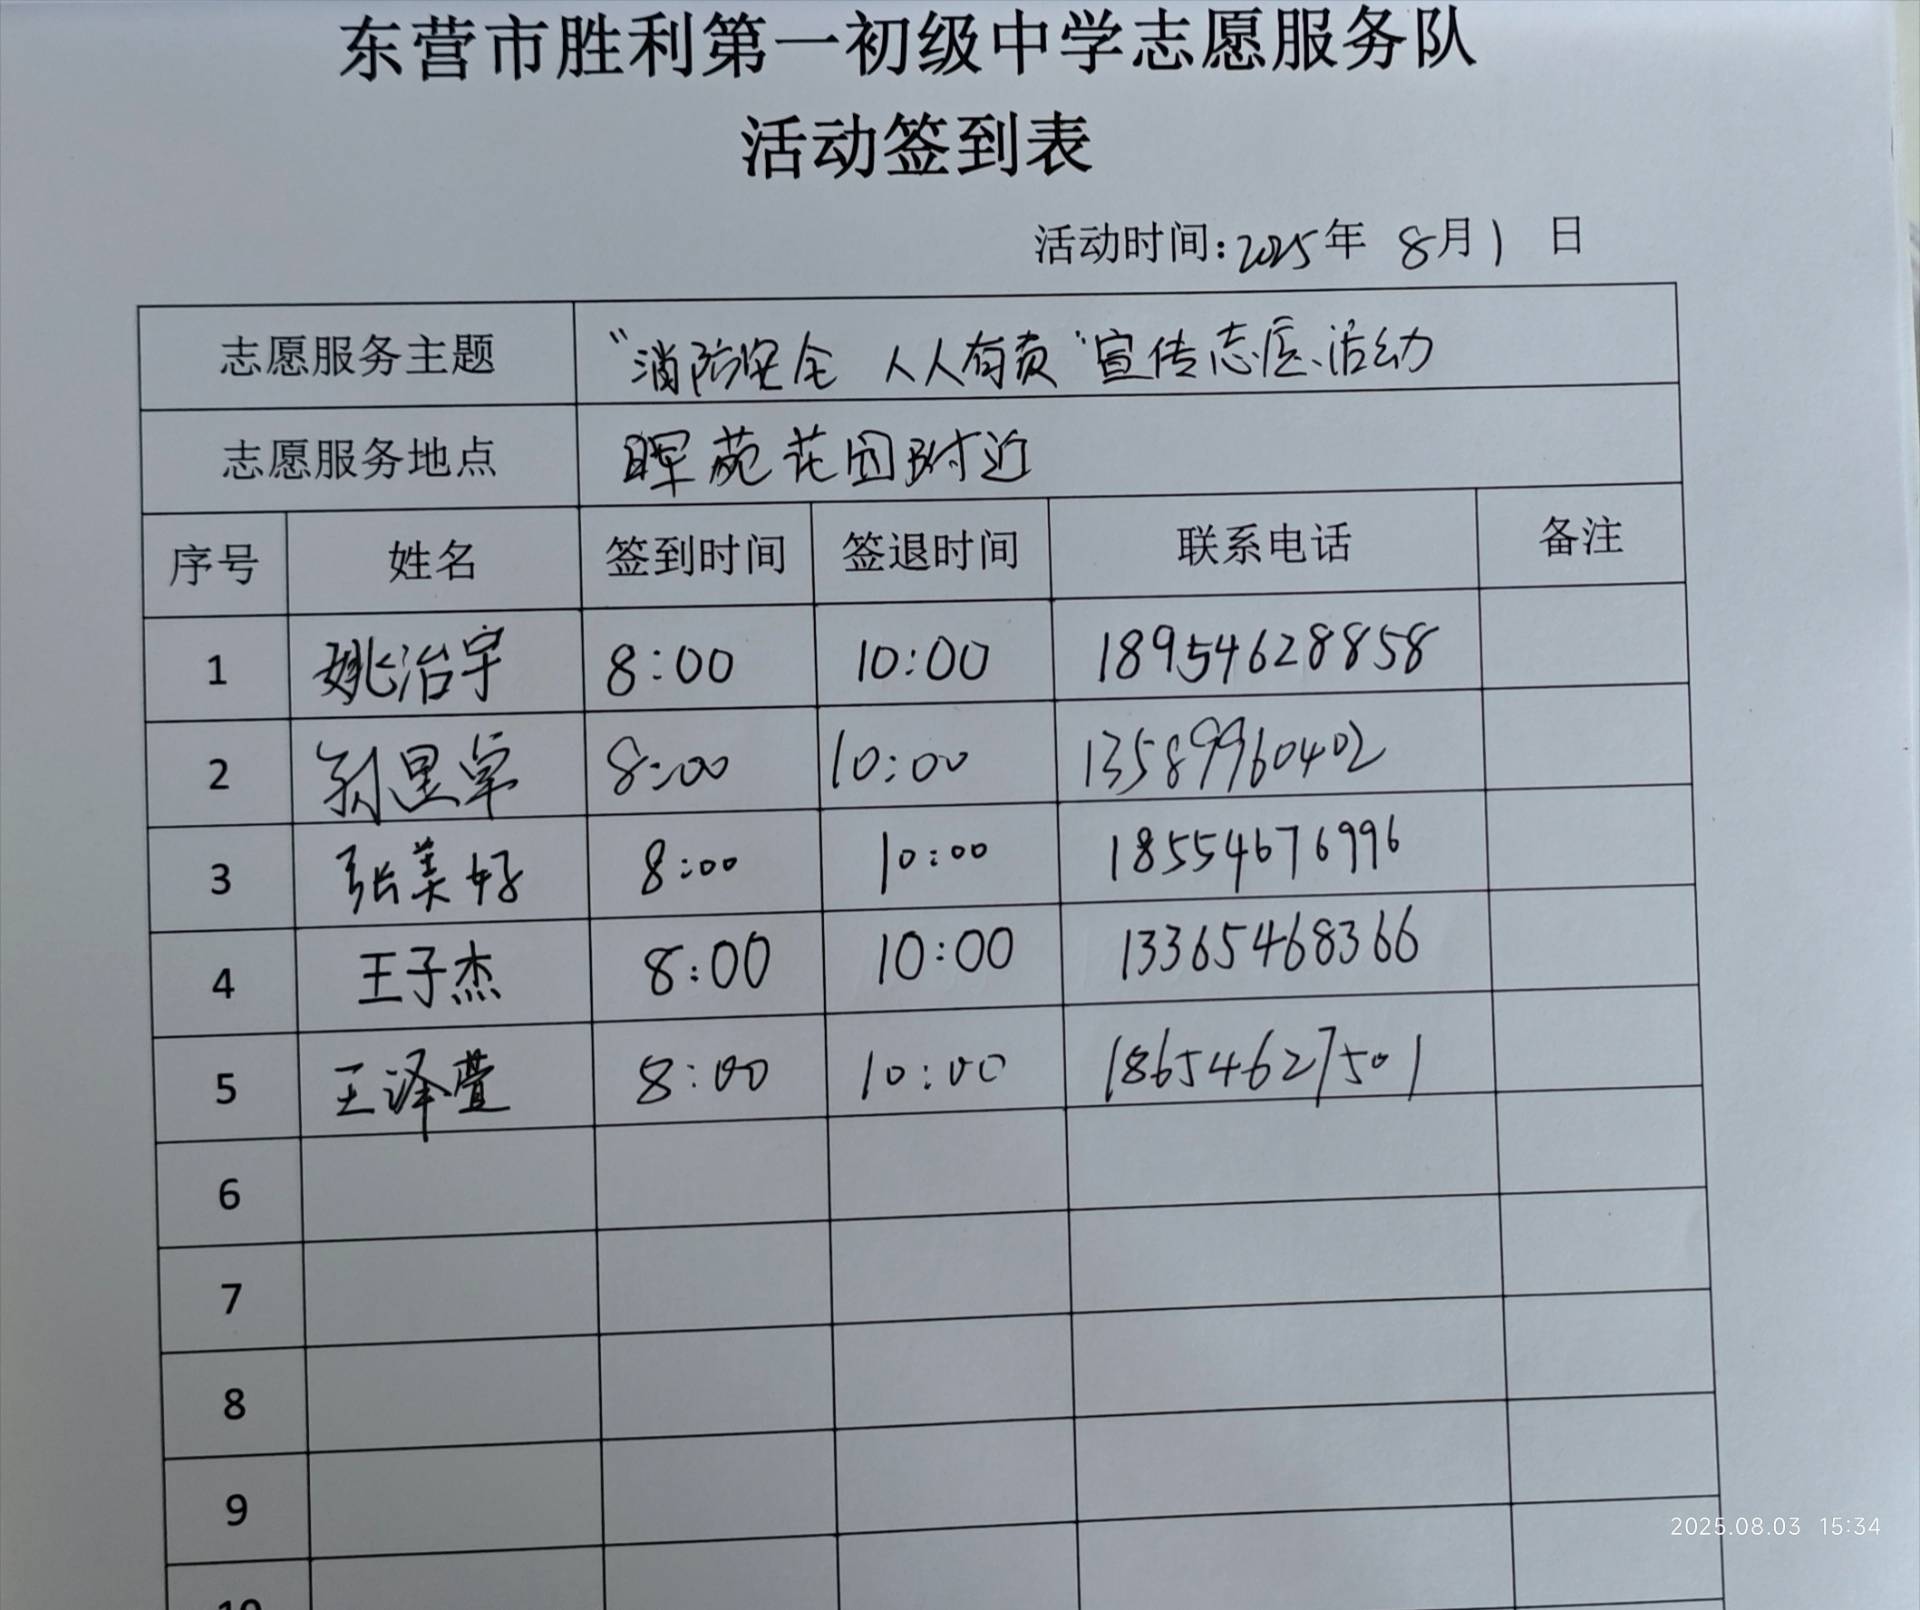 东营市胜利第一初级中学志愿服务队
活动签到表
活动时间：2025年 8月1 日
志愿服务主题 “消防安全 人人有责”宣传志愿活动
志愿服务地点 晖苑花园附近
序号 姓名 签到时间 签退时间 联系电话 备注
1 姚治宇 8:00 10:00 18954628858
2 8:00 10:00 13589960402
3 张美好 8:00 10:00 18554676996
4 王子杰 8:00 10:00 13365468366
5 王泽萱 8:00 10:00 18654627501
6
7
8
9
10
2025.08.03 15:34